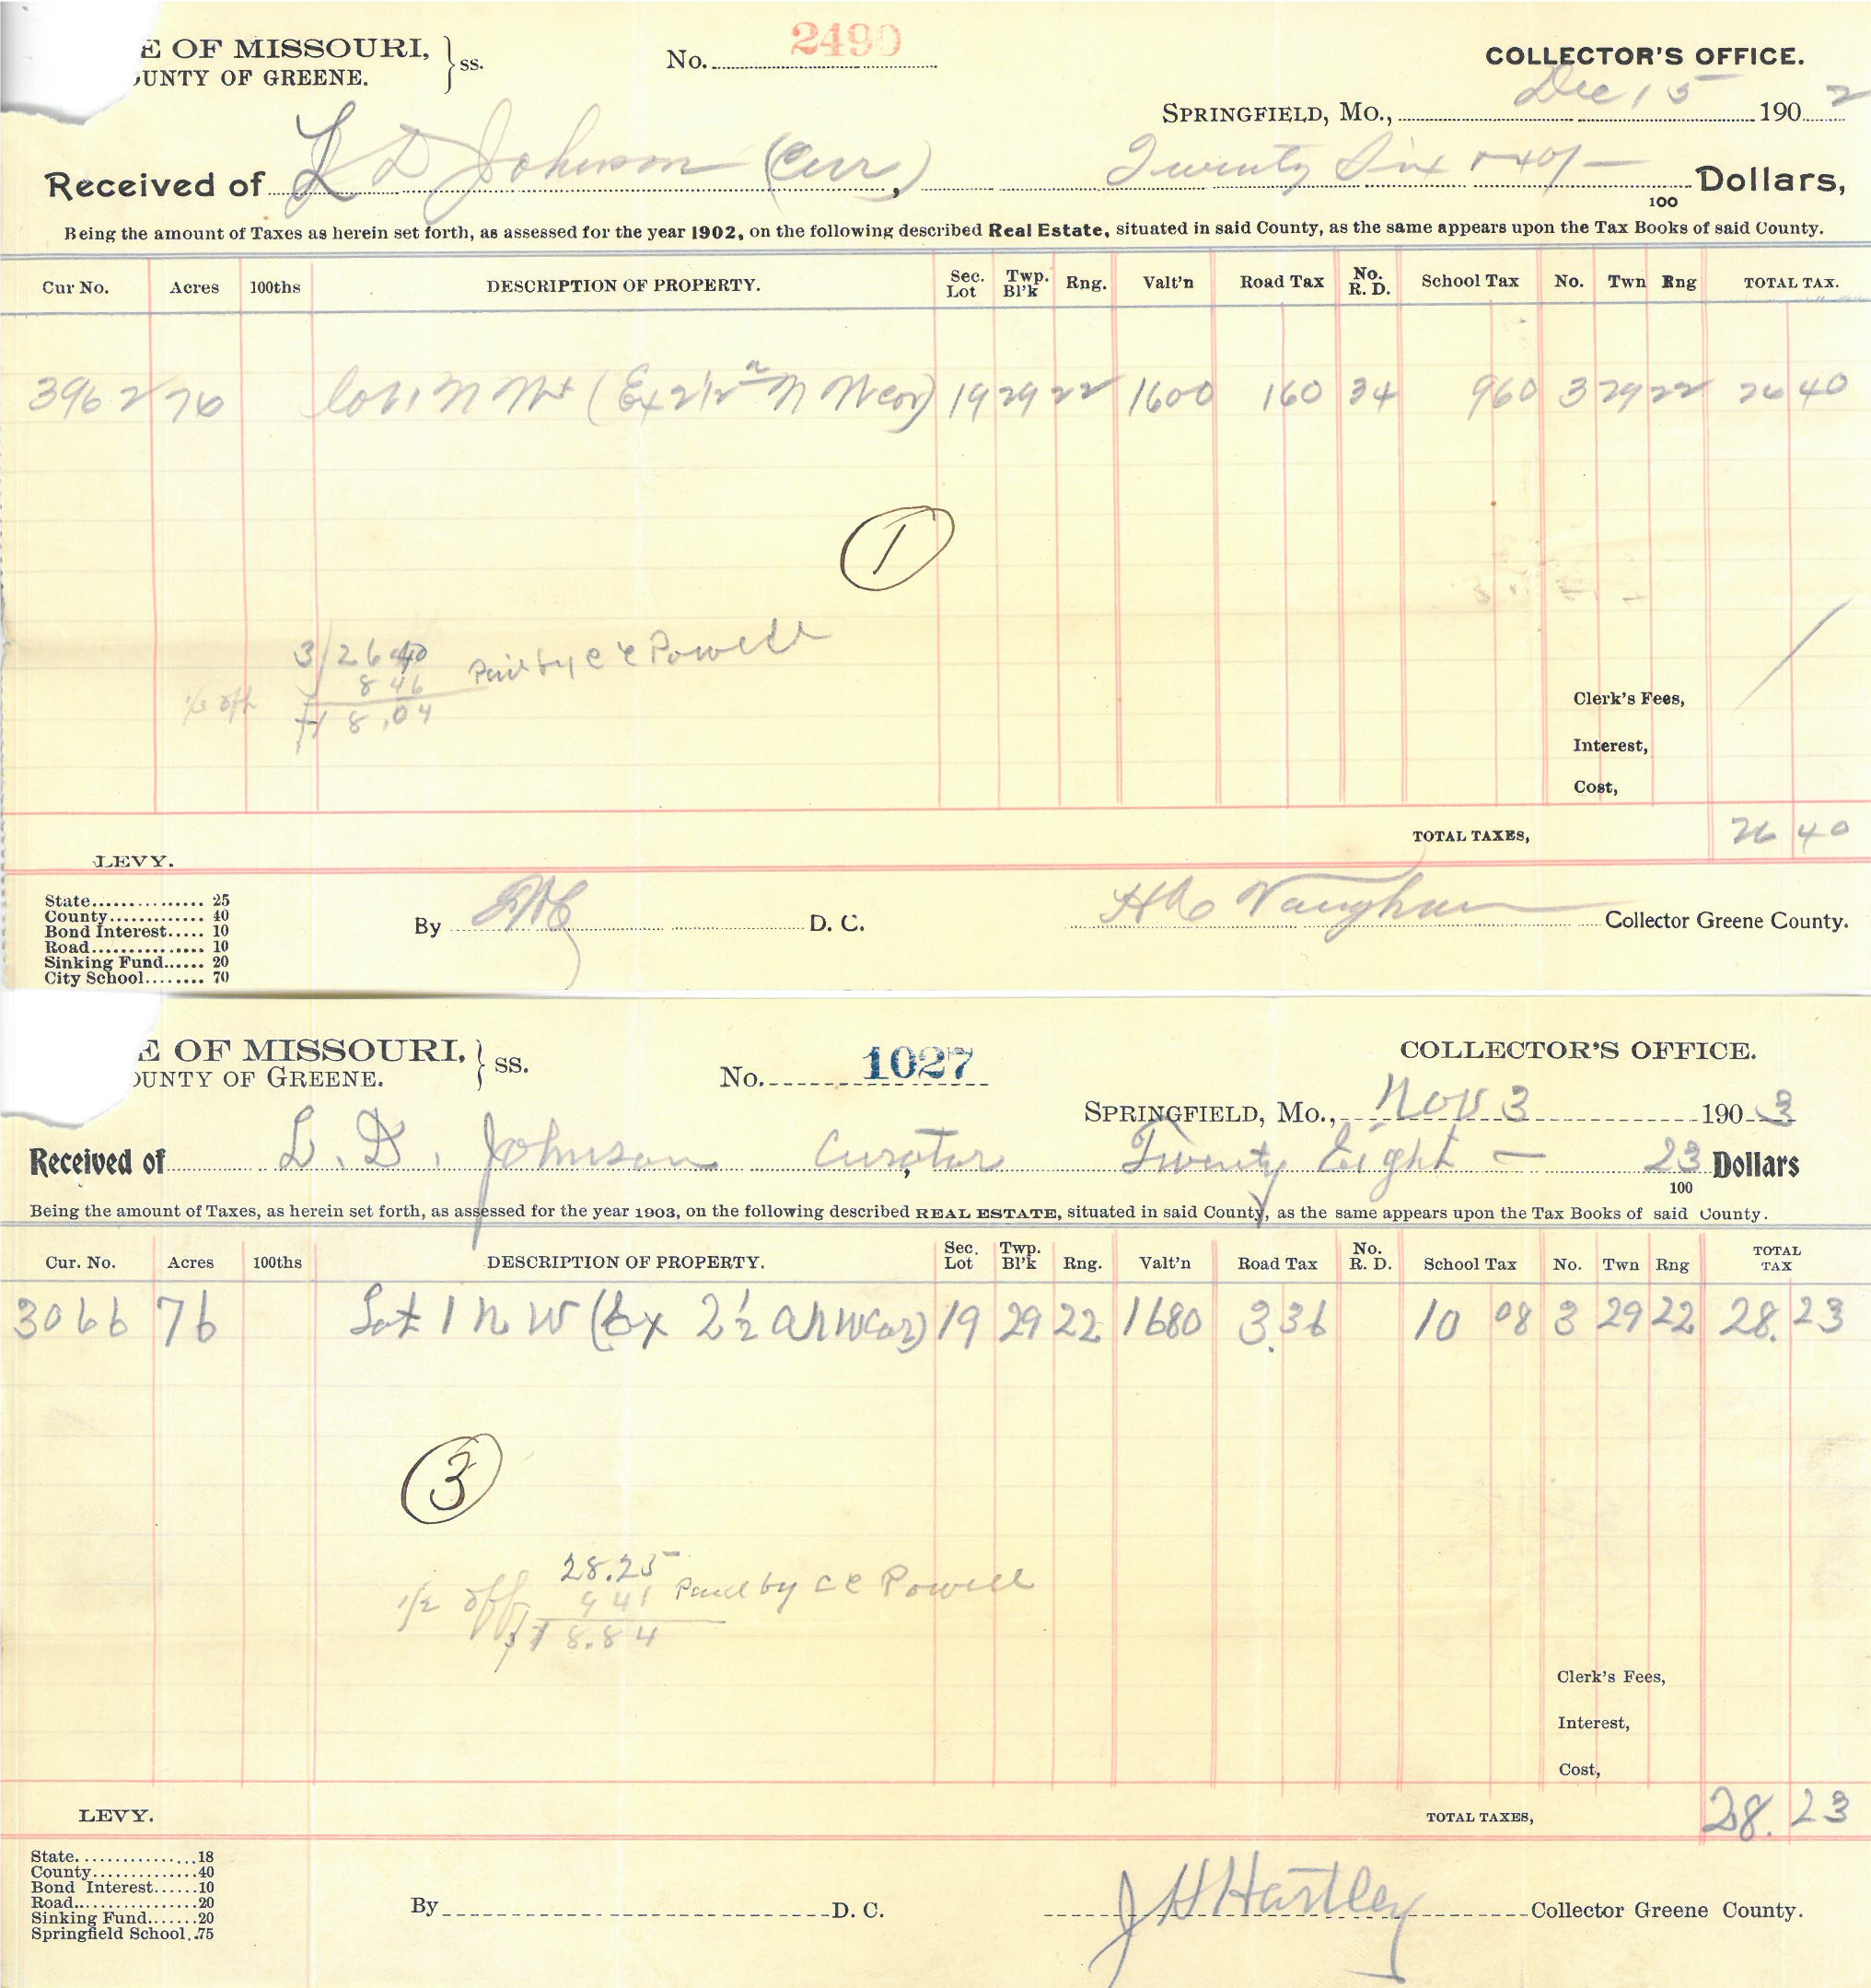 E OF MISSOURI, } ss. No. 2490 COLLECTOR'S OFFICE.
OUNTY OF GREENE.
SPRINGFIELD, MO., Dec 15 1902
Received of L D Johnson (Cur), Twenty Six + 40/ 100 Dollars,
Being the amount of Taxes as herein set forth, as assessed for the year 1902, on the following described Real Estate, situated in said County, as the same appears upon the Tax Books of said County.
Cur No. Acres 100ths DESCRIPTION OF PROPERTY. Sec. Lot Twp. Bl'k Rng. Valt'n Road Tax No. R. D. School Tax No. Twn Rng TOTAL TAX.
3962 76 Lot 1 N W (Ex 2 1/2 a N W cor) 19 29 22 1600 160 34 960 3 29 22 26 40
1
3/26 40 Paid by C E Powell
8 46
1/3 off 8.04
Clerk's Fees,
Interest,
Cost,
TOTAL TAXES, 26 40
LEVY.
State............... 25
County............. 40
Bond Interest..... 10
Road............... 10
Sinking Fund...... 20
City School........ 70
By D. C. Vaughan Collector Greene County.
E OF MISSOURI, } ss. No. 1027 COLLECTOR'S OFFICE.
OUNTY OF GREENE.
SPRINGFIELD, MO., Nov 3 1903
Received of L. D. Johnson, Curator Twenty Eight — 23 100 Dollars
Being the amount of Taxes, as herein set forth, as assessed for the year 1903, on the following described REAL ESTATE, situated in said County, as the same appears upon the Tax Books of said County.
Cur. No. Acres 100ths DESCRIPTION OF PROPERTY. Sec. Lot Twp. Bl'k Rng. Valt'n Road Tax No. R. D. School Tax No. Twn Rng TOTAL TAX
3066 76 Lot 1 N W (Ex 2 1/2 a N W cor) 19 29 22 1680 3.36 10 08 3 29 22 28.23
3
28.25
1/2 off 9 41 Paid by C E Powell
8.84
Clerk's Fees,
Interest,
Cost,
TOTAL TAXES, 28.23
LEVY.
State...............18
County.............40
Bond Interest......10
Road...............20
Sinking Fund.......20
Springfield School..75
By D. C. J H Hartley Collector Greene County.